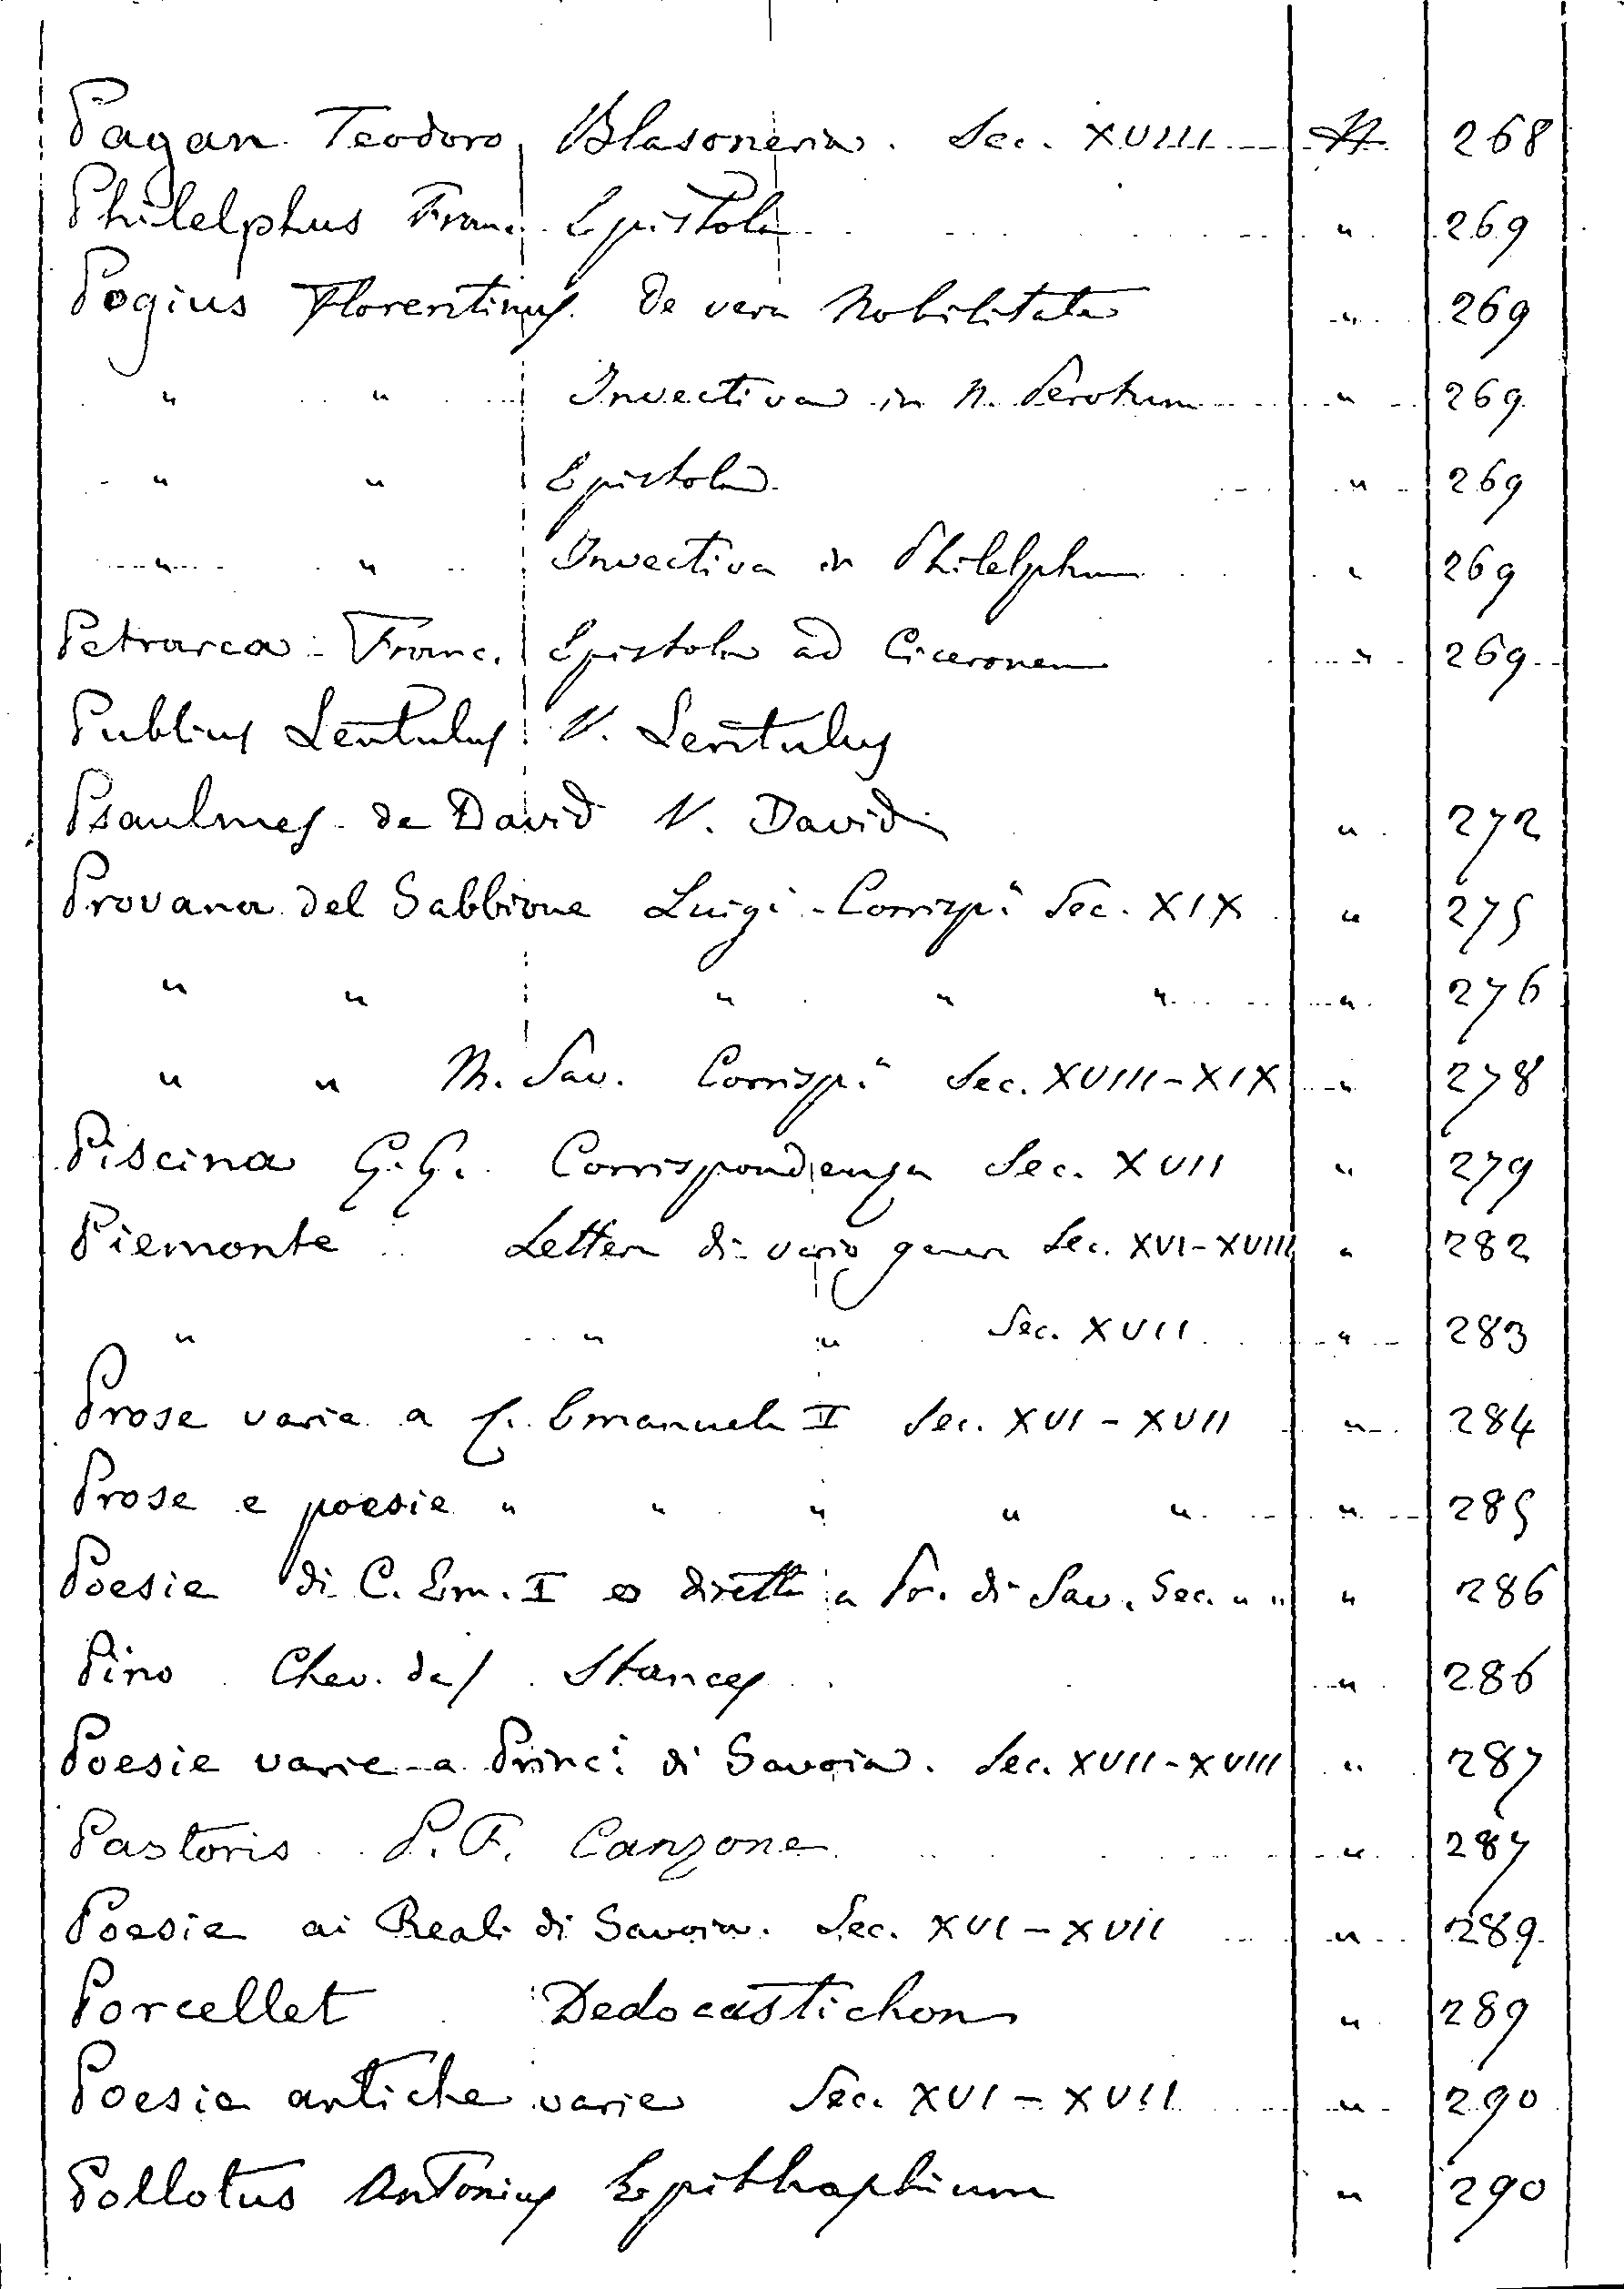 Pagan Teodoro Blasoneria. Sec. XVIII 268
Philelphus Franc. Epistola " 269
Pogius Florentinus. De vera Nobilitate " 269
" " Invectiva in N. Perotum " 269
" " Epistola " 269
" " Invectiva in Philelphum " 269
Petrarca Franc. Epistola ad Ciceronem " 269
Publius Lentulus V. Lentulus
Psaulmes de David V. David " 272
Provana del Sabbione Luigi - Corrisp.a Sec. XIX " 275
" " " " " " 276
" " M. Sav. Corrisp.a Sec. XVIII-XIX " 278
Piscina G.G. Corrispondenza Sec. XVII " 279
Piemonte Lettere di vario genere Sec. XVI-XVIII " 282
" " " Sec. XVII " 283
Prose varie a C. Emanuele II Sec. XVI-XVII " 284
Prose e poesie " " " " " " 285
Poesie di C. Em. I e dirette a Pr. di Sav. Sec. " " " 286
Pino Chev. de Stances " 286
Poesie varie a Princ.i di Savoia. Sec. XVII-XVIII " 287
Pastoris P.F. Canzone " 287
Poesie ai Reali di Savoia. Sec. XVI-XVII " 289
Porcellet Dedocastichon " 289
Poesie antiche varie Sec. XVI-XVII " 290
Pollotus Antonius Epithaphium " 290